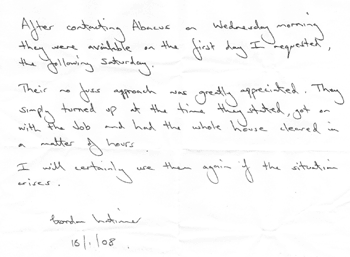 After contacting Abacus on Wednesday morning
they were available on the first day I requested,
the following Saturday.
Their no fuss approach was greatly appreciated. They
simply turned up at the time they stated, got on
with the Job and had the whole house cleared in
a matter of hours.
I will certainly use them again if the situation
arises.
15/1/08.